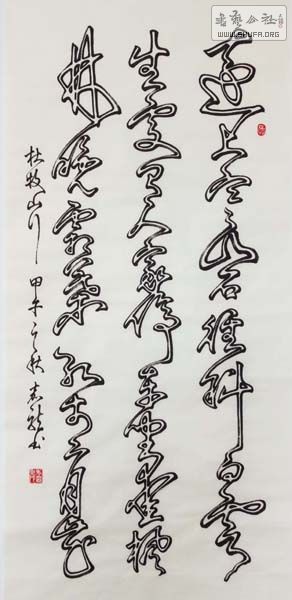 書藝公社
WWW.SHUFA.ORG
遠上寒山石徑斜白雲
生處有人家停車坐愛楓
林晚霜葉紅于二月花
杜牧山行 甲午之秋 書